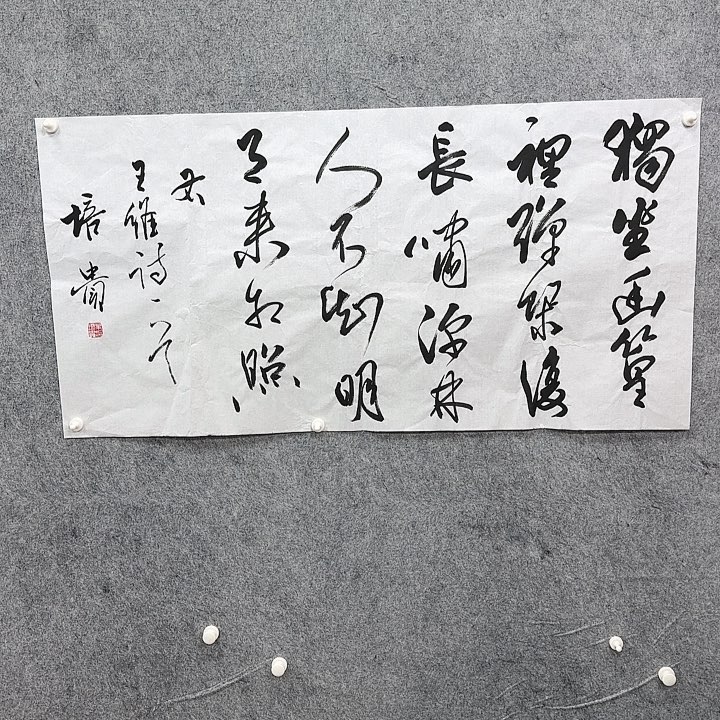 獨坐幽篁
裡彈琴復
長嘯深林
人不知明
月來相照
王維詩一首
培貴